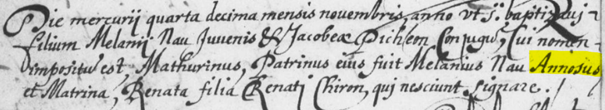 Die mercurii quarta decima mensis novembris, anno vt s. baptizavi
filium Melanii Nau Juvenis & Jacobeæ Pichon Conjugū, Cui nomen
impositū est, Mathurinus, Patrinus eius fuit Melanius Nau Annosus
et Matrina, Renata filia Renati Chiron, qui nesciunt signare.